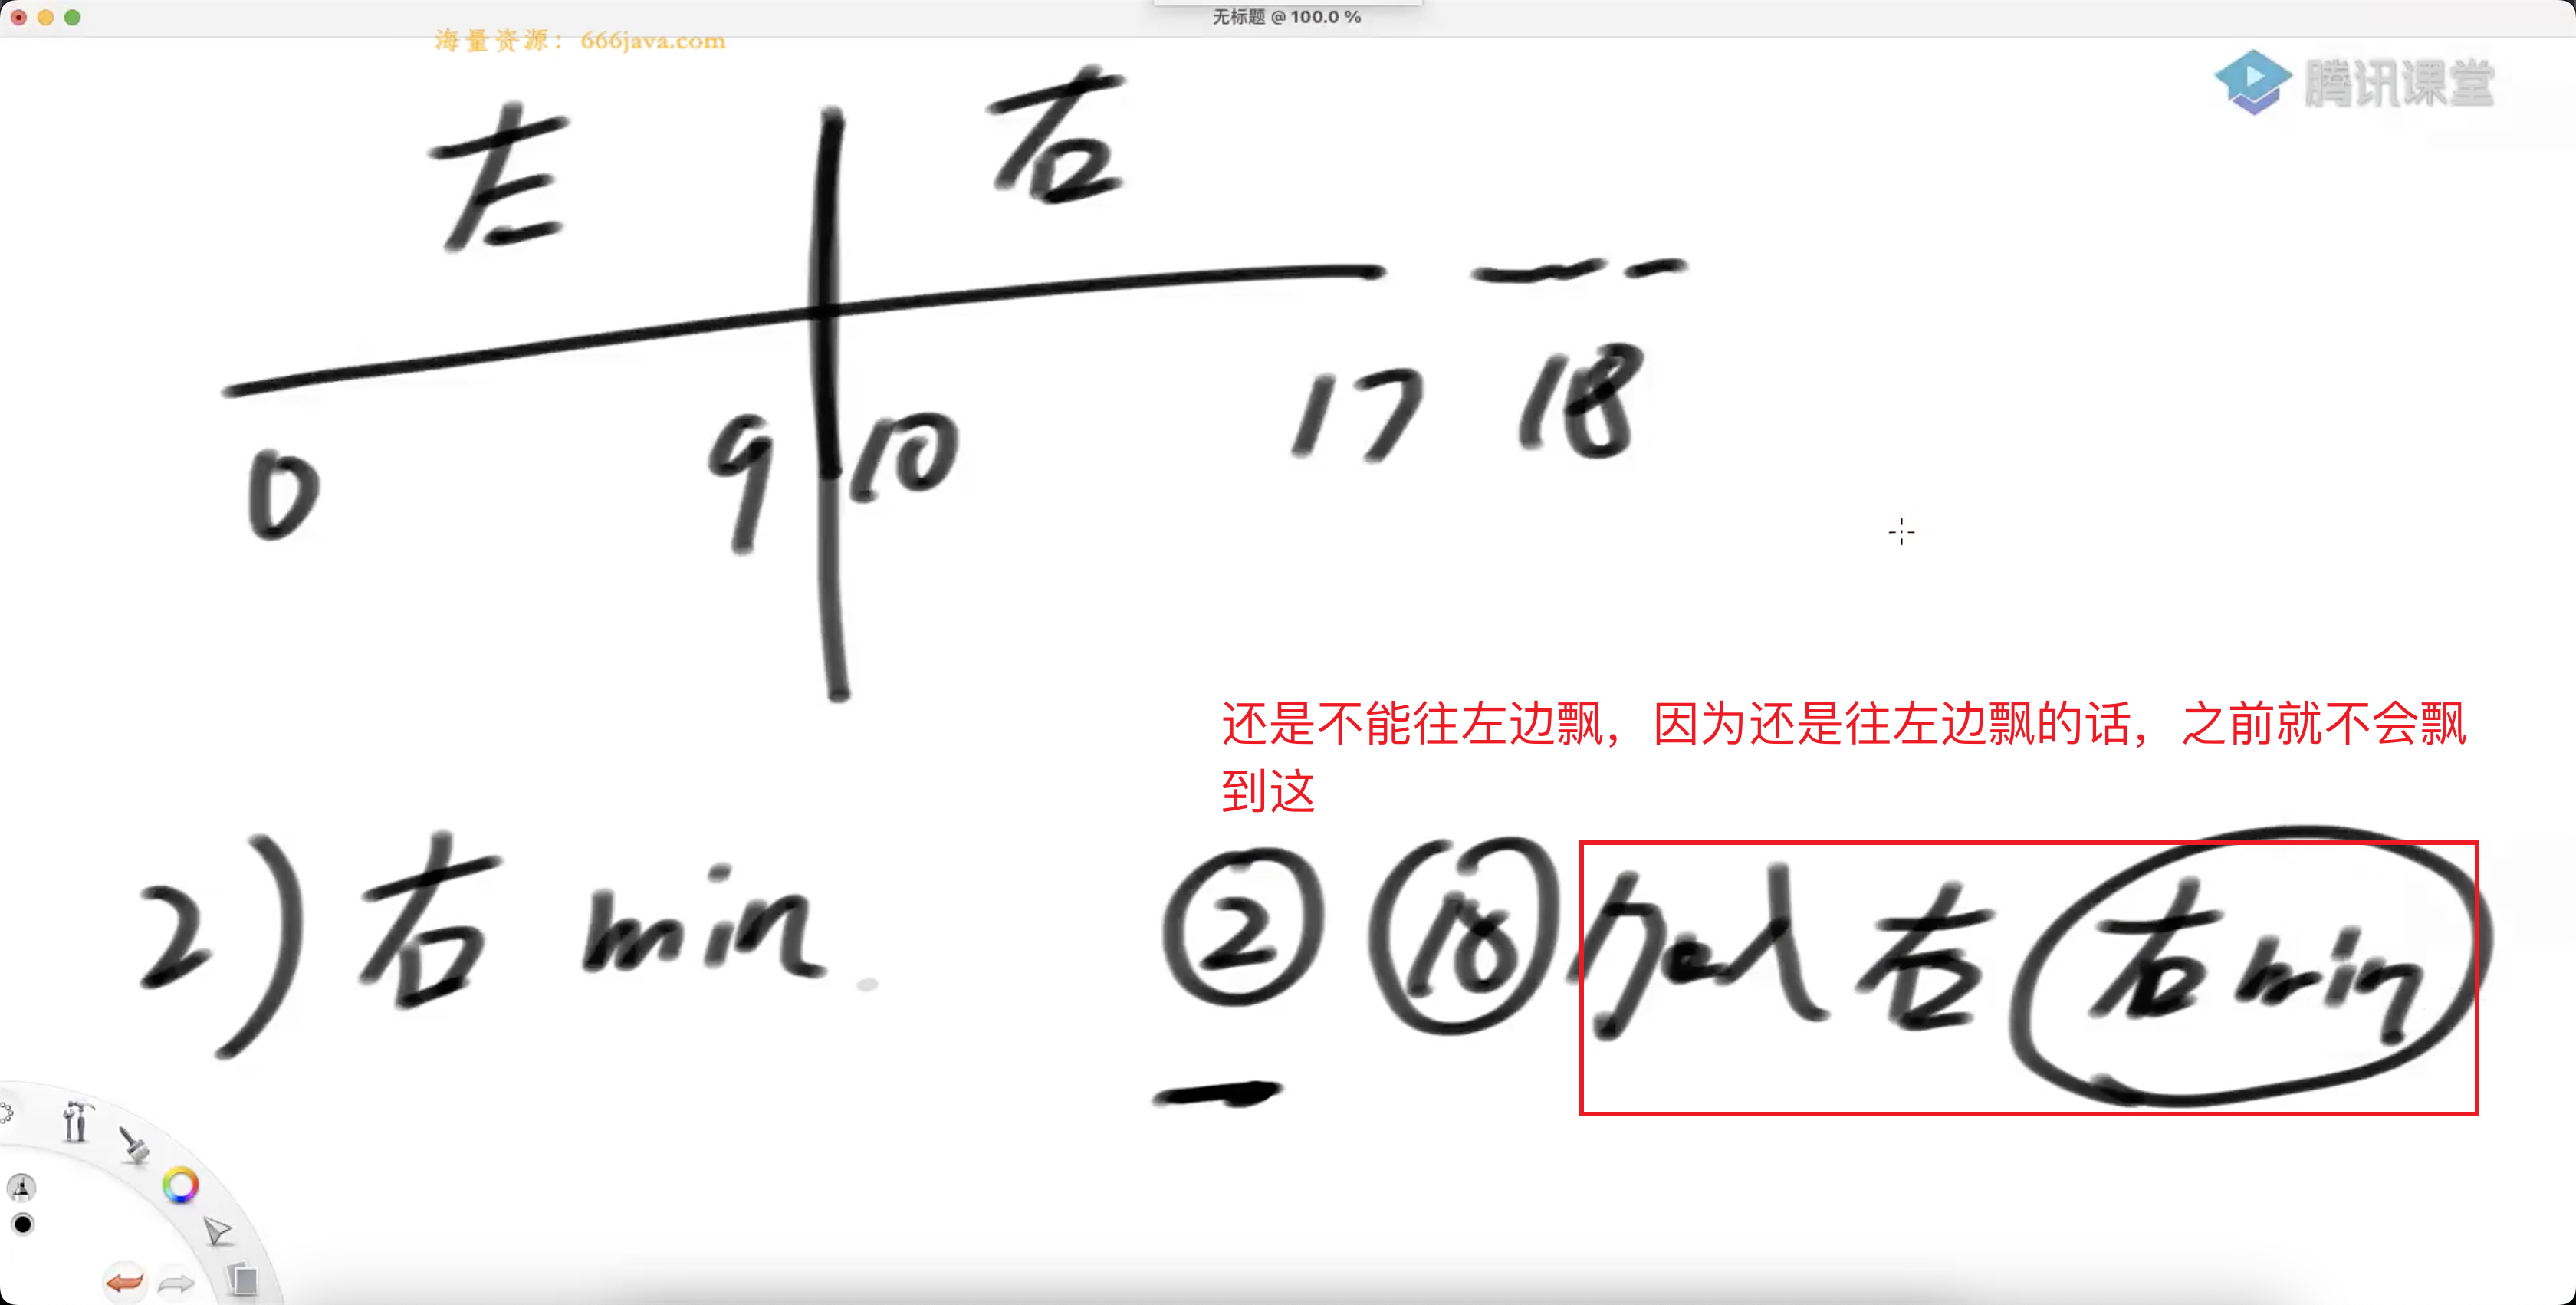 无标题 @ 100.0 %
海量资源：666java.com
腾讯课堂
左 右
0 9 10 17 18
还是不能往左边飘，因为还是往左边飘的话，之前就不会飘
到这
2) 右 min. ② 18 右 右min